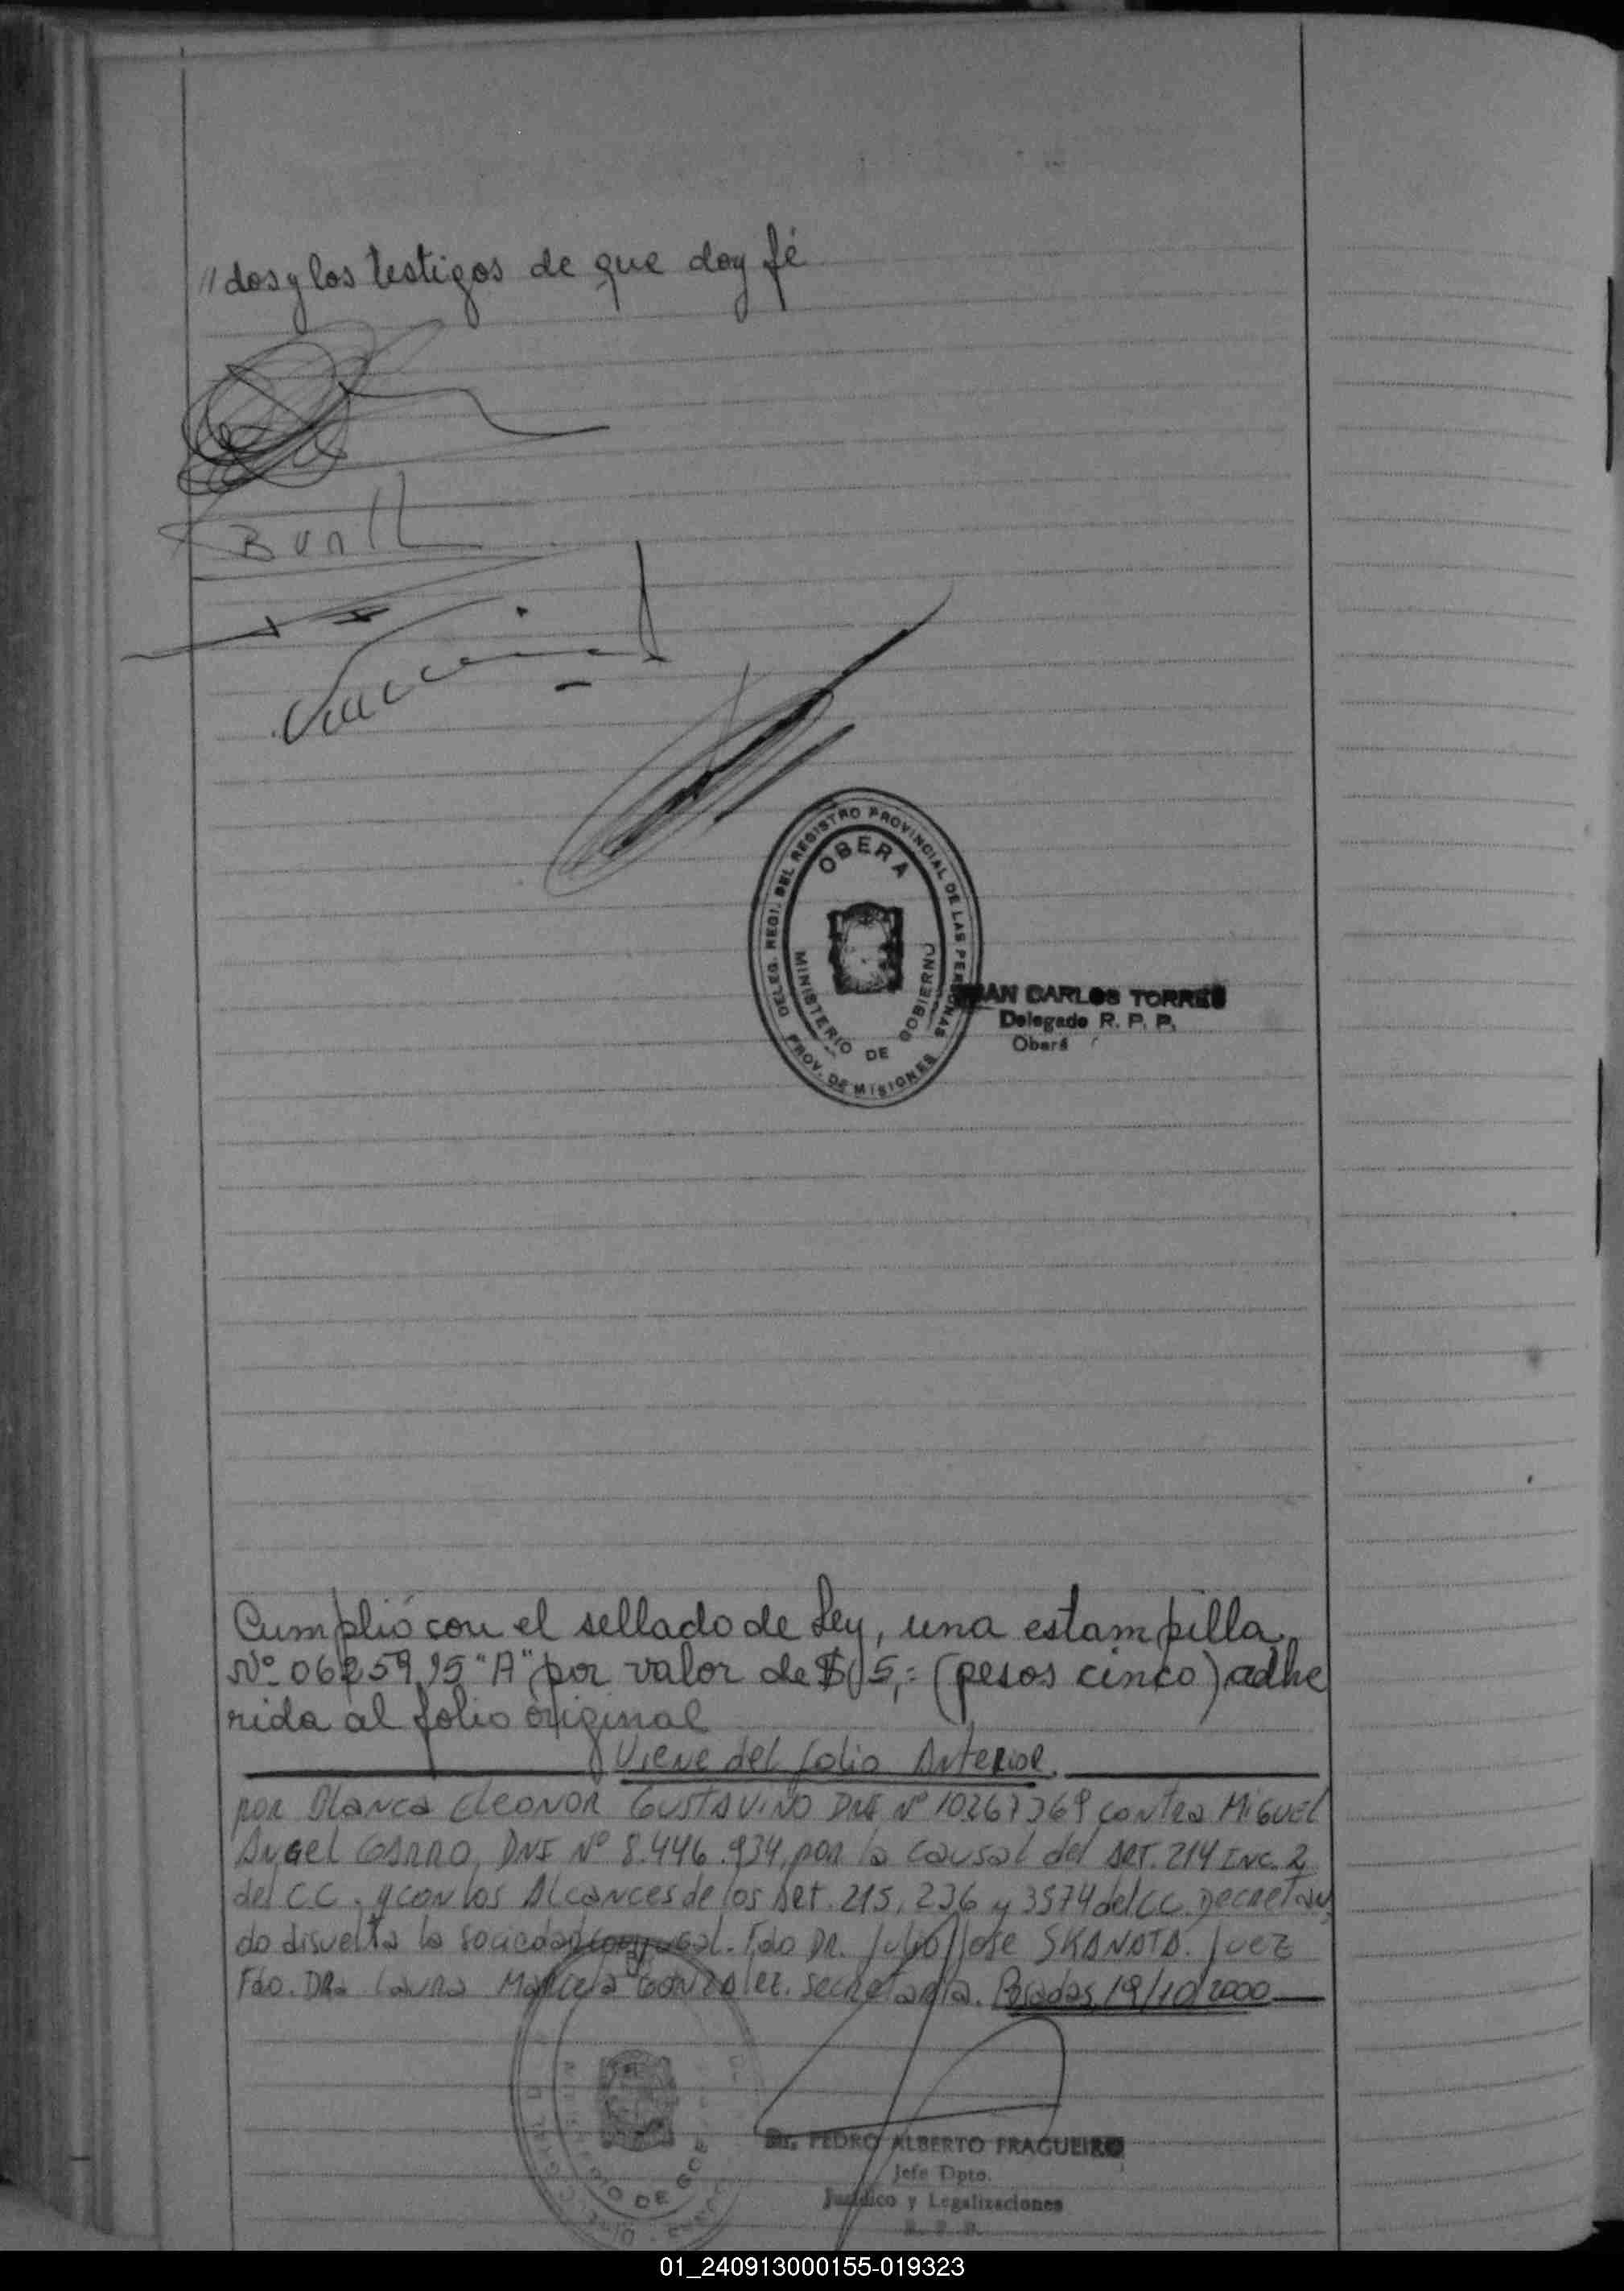 // dos y los testigos de que doy fé
DELEG. REGI. DEL REGISTRO PROVINCIAL DE LAS PERSONAS
OBERA
MINISTERIO DE GOBIERNO
PROV. DE MISIONES
JUAN CARLOS TORRES
Delegado R. P. P.
Oberá
Cumplió con el sellado de Ley, una estampilla
Nº 0625915 "A" por valor de $ 5,= (pesos cinco) adhe
rida al folio original
Viene del folio Anterior.
por Blanca Eleonor GUSTAVINO DNI Nº 10267369 contra MiGUEL
Angel GARRO, DNI Nº 8.446.934, por la causal del ART. 214 INC. 2
del C C. y con los Alcances de los Art. 215, 236 y 3574 del CC. Decretan
do disuelta la sociedad conyugal. Fdo DR. Julio Jose SKANATA. Juez
Fdo. DRa Laura Marcela GONZALEZ. Secretaria. Posadas, 19/10/2000
DE GOB
Dr. PEDRO ALBERTO FRAGUEIRO
Jefe Dpto.
Jurídico y Legalizaciones
R. P. P.
01_240913000155-019323